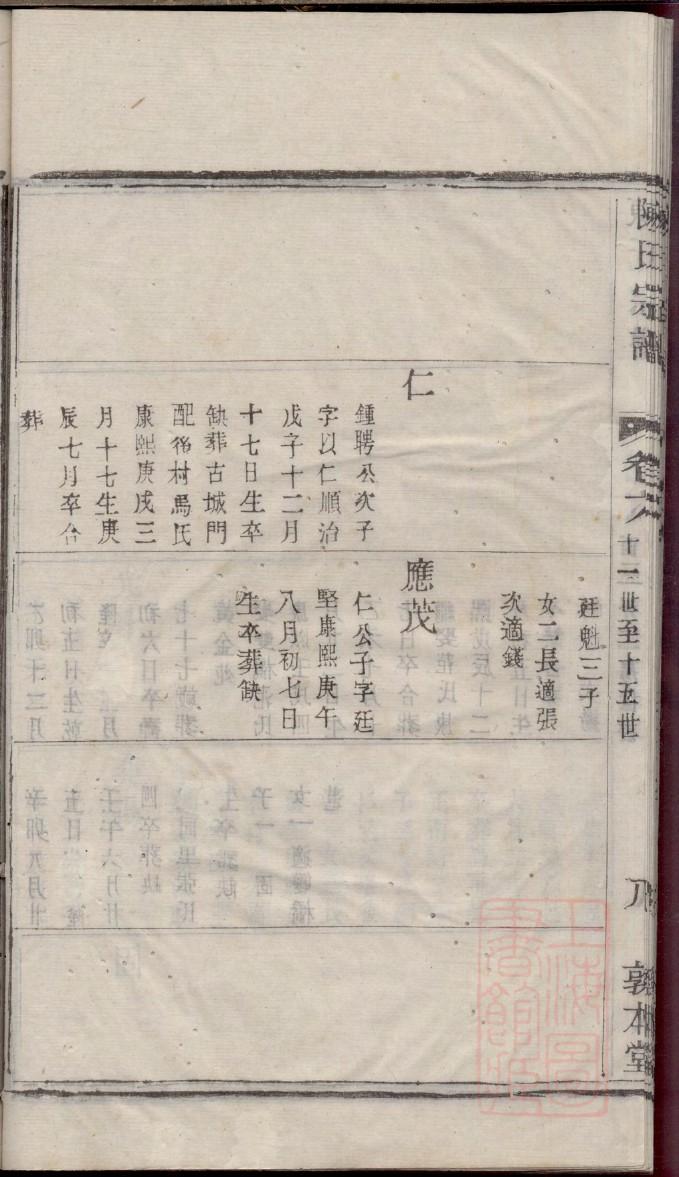 陳氏宗譜
卷六
十二世至十五世
八
敦本堂
仁
鍾聘公次子
字以仁順治
戊子十二月
十七日生卒
缺葬古城門
配佫村馬氏
康熙庚戌三
月十七生庚
辰七月卒合
葬
廷魁三子
女二長適張
次適錢
應茂
仁公子字廷
堅康熙庚午
八月初七日
生卒葬缺
上海圖
書館藏